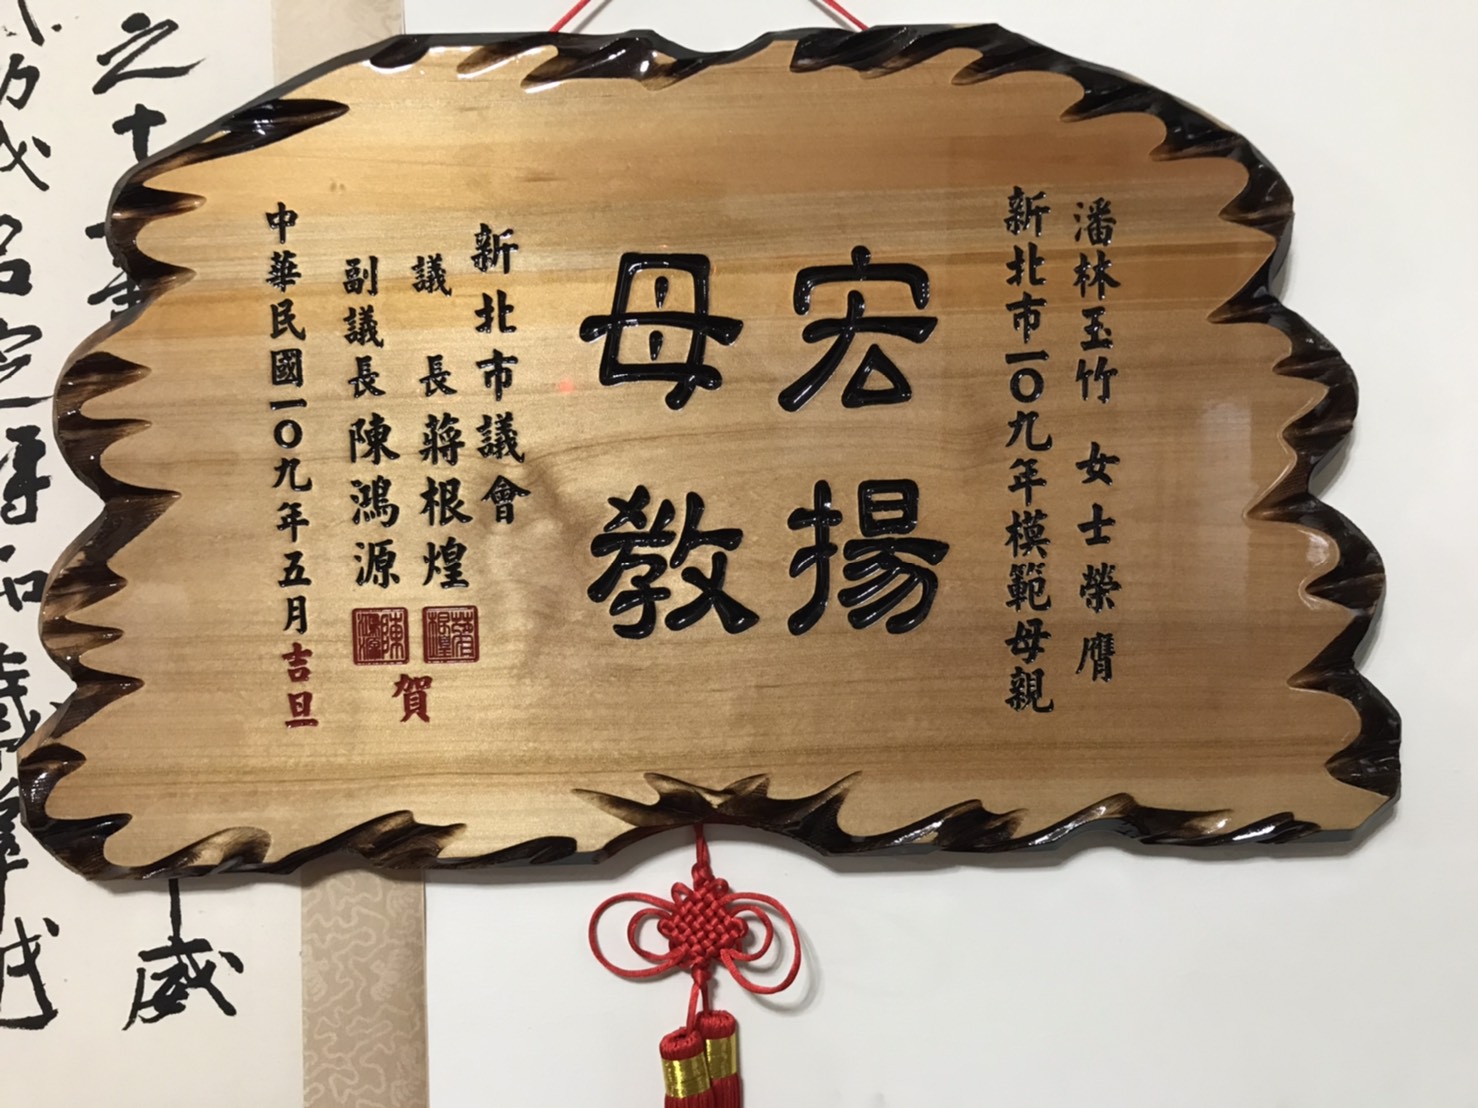 潘林玉竹 女士榮膺
新北市一〇九年模範母親
宏揚
母教
新北市議會
議長蔣根煌
副議長陳鴻源
賀
中華民國一〇九年五月吉旦
之十
威